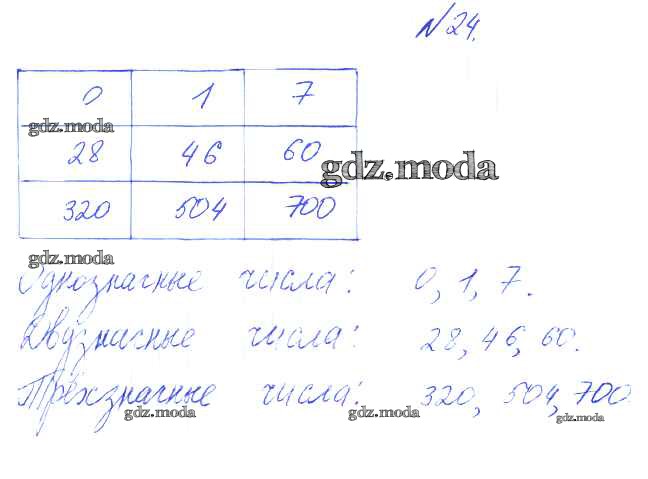 № 24.
0 1 7
gdz.moda
28 46 60
gdz.moda
320 504 700
gdz.moda
Однозначные числа: 0, 1, 7.
Двузначные числа: 28, 46, 60.
Трёхзначные числа: 320, 504, 700
gdz.moda gdz.moda gdz.moda